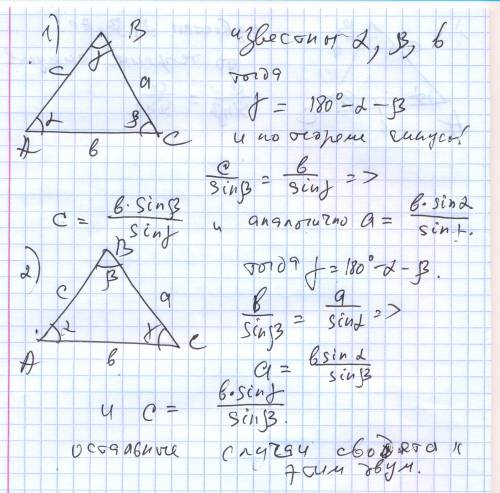 1)
B
γ
c
a
α
β
A
b
C
известны α, β, b
тогда
γ = 180° - α - β
и по теореме синусов:
c/sinβ = b/sinγ =>
c = b·sinβ/sinγ и аналогично a = b·sinα/sinγ.
2)
B
β
c
a
α
γ
A
b
C
тогда γ = 180° - α - β.
b/sinβ = a/sinα =>
a = b sinα/sinβ
и c = b·sinγ/sinβ.
оставшиеся случаи сводятся к
этим двум.